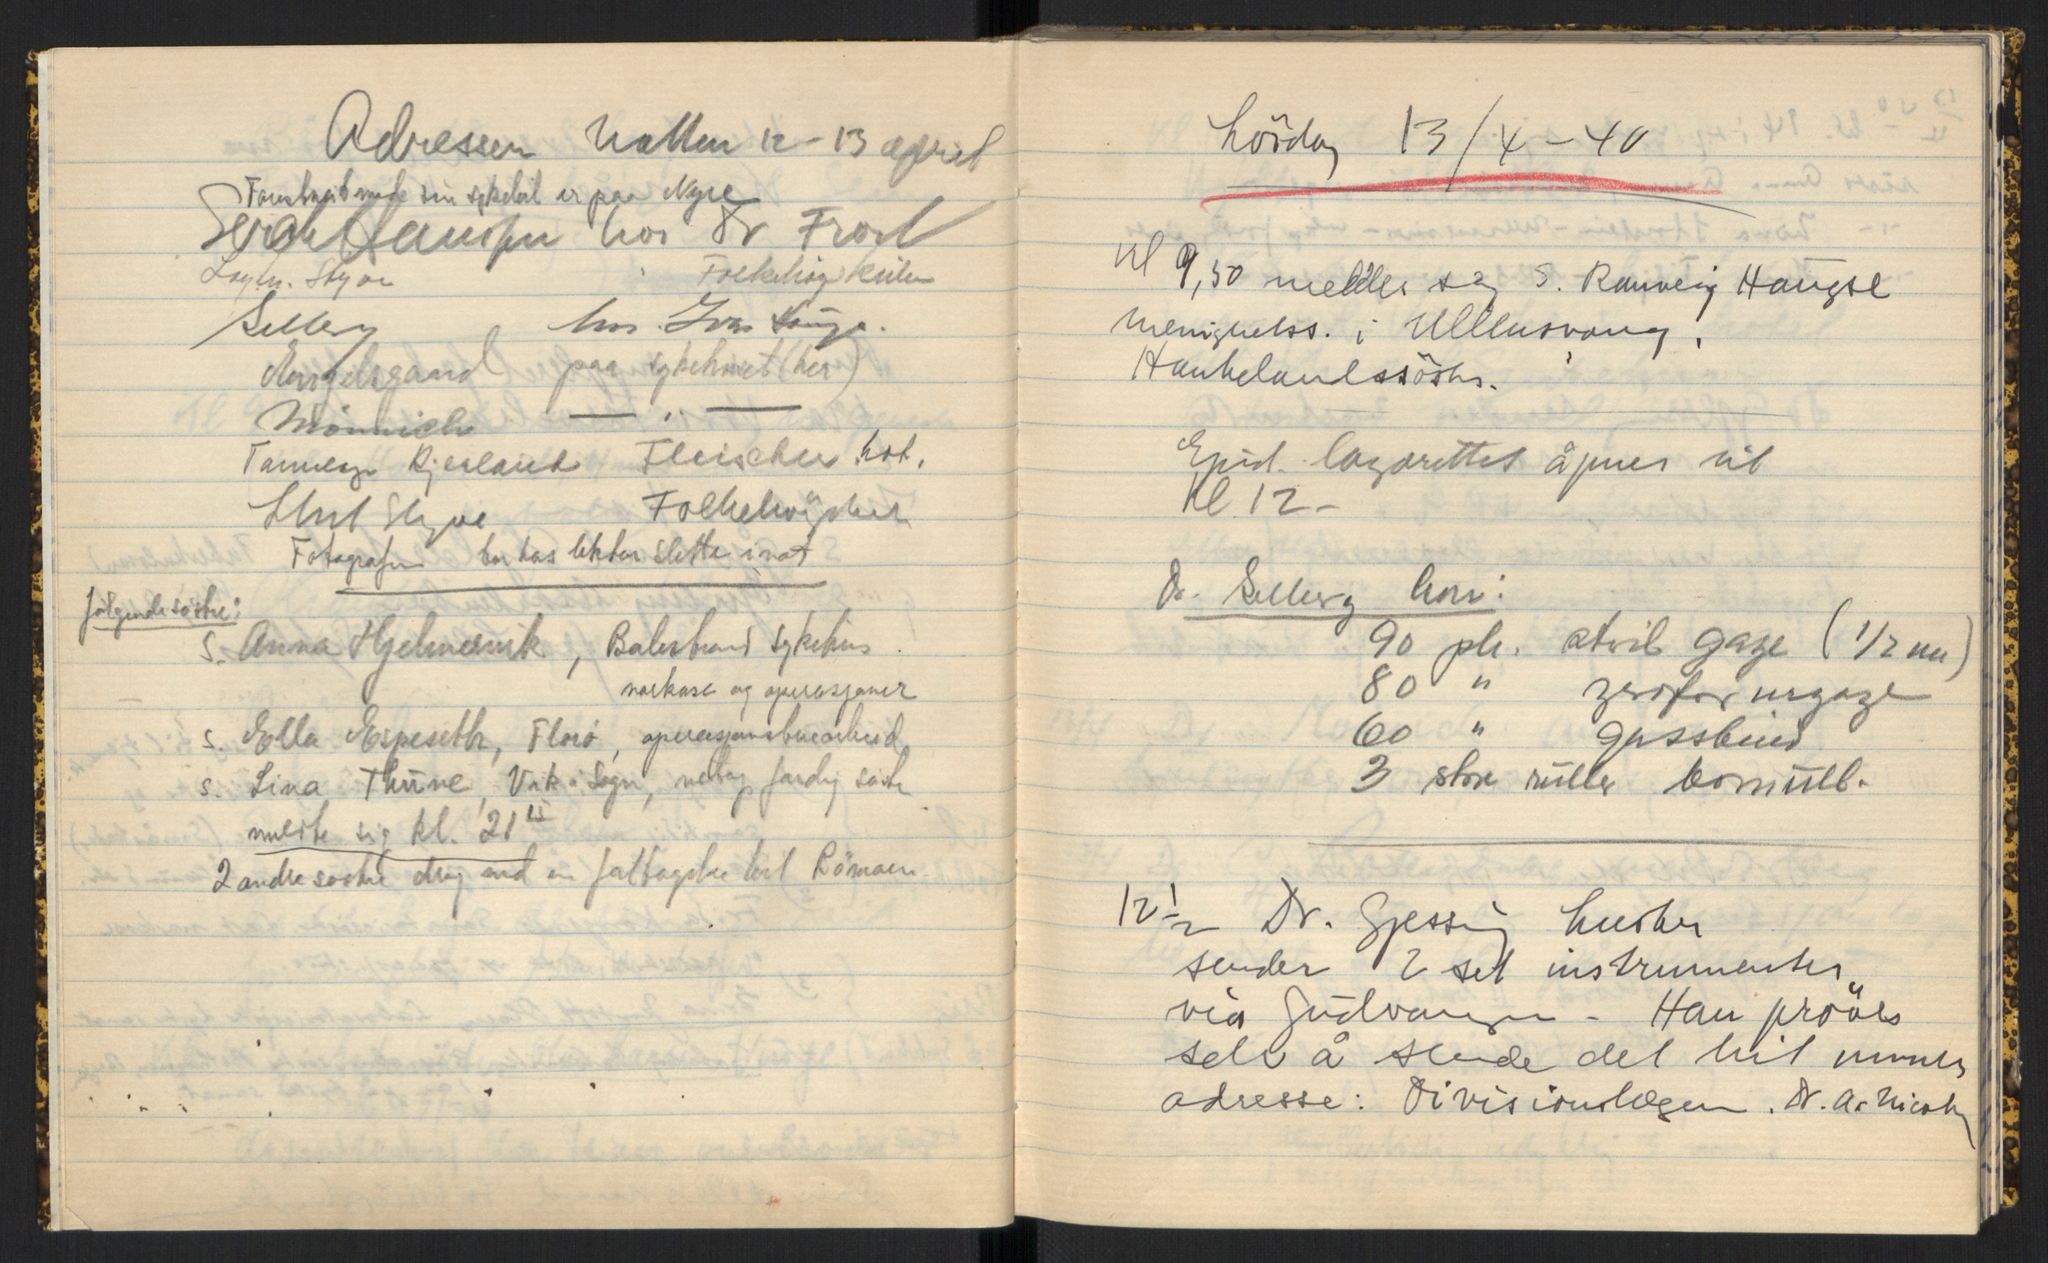 Adressen Natten 12-13 april
sin sykebil er paa Nyre
hos Dr Frost
Styve Folkehögskulen
Selberg hos. Ivar
paa sykehuset (her)
Mönnich — " —
Tannlege Kjerland Fleischer hot.
Styve Folkehögskul
Fotografen bor hos lektor Slette i nat
følgende søstre:
S. Anna Hjelmervik, Balestrand sykehus.
narkose og operasjoner
S. Ella Espeseth, Florø, operasjonsstuearbeid
S. Lina Thune, Vik i Sogn, netop færdig
meldte sig kl. 21
2 andre søstre drog med en til Bömoen
Lördag 13/4-40
Kl 9,50 melder seg S. Ranveig Haugse
menighetss. i Ullensvang,
Haukelandssöster.
Epid. lazarettet åpner
Kl 12-
Dr. Selberg har:
90 pk. steril gaze (1/2 m)
80 " xeroformgaze
60 " gassbind
3 store ruller bomull.
12 1/2 Dr. Gjessing Luster
sender 2 set instrumenter
via Gudvangen - Han pröver
selv å sende det hit
adresse: Divisionslægen. Dr. A.